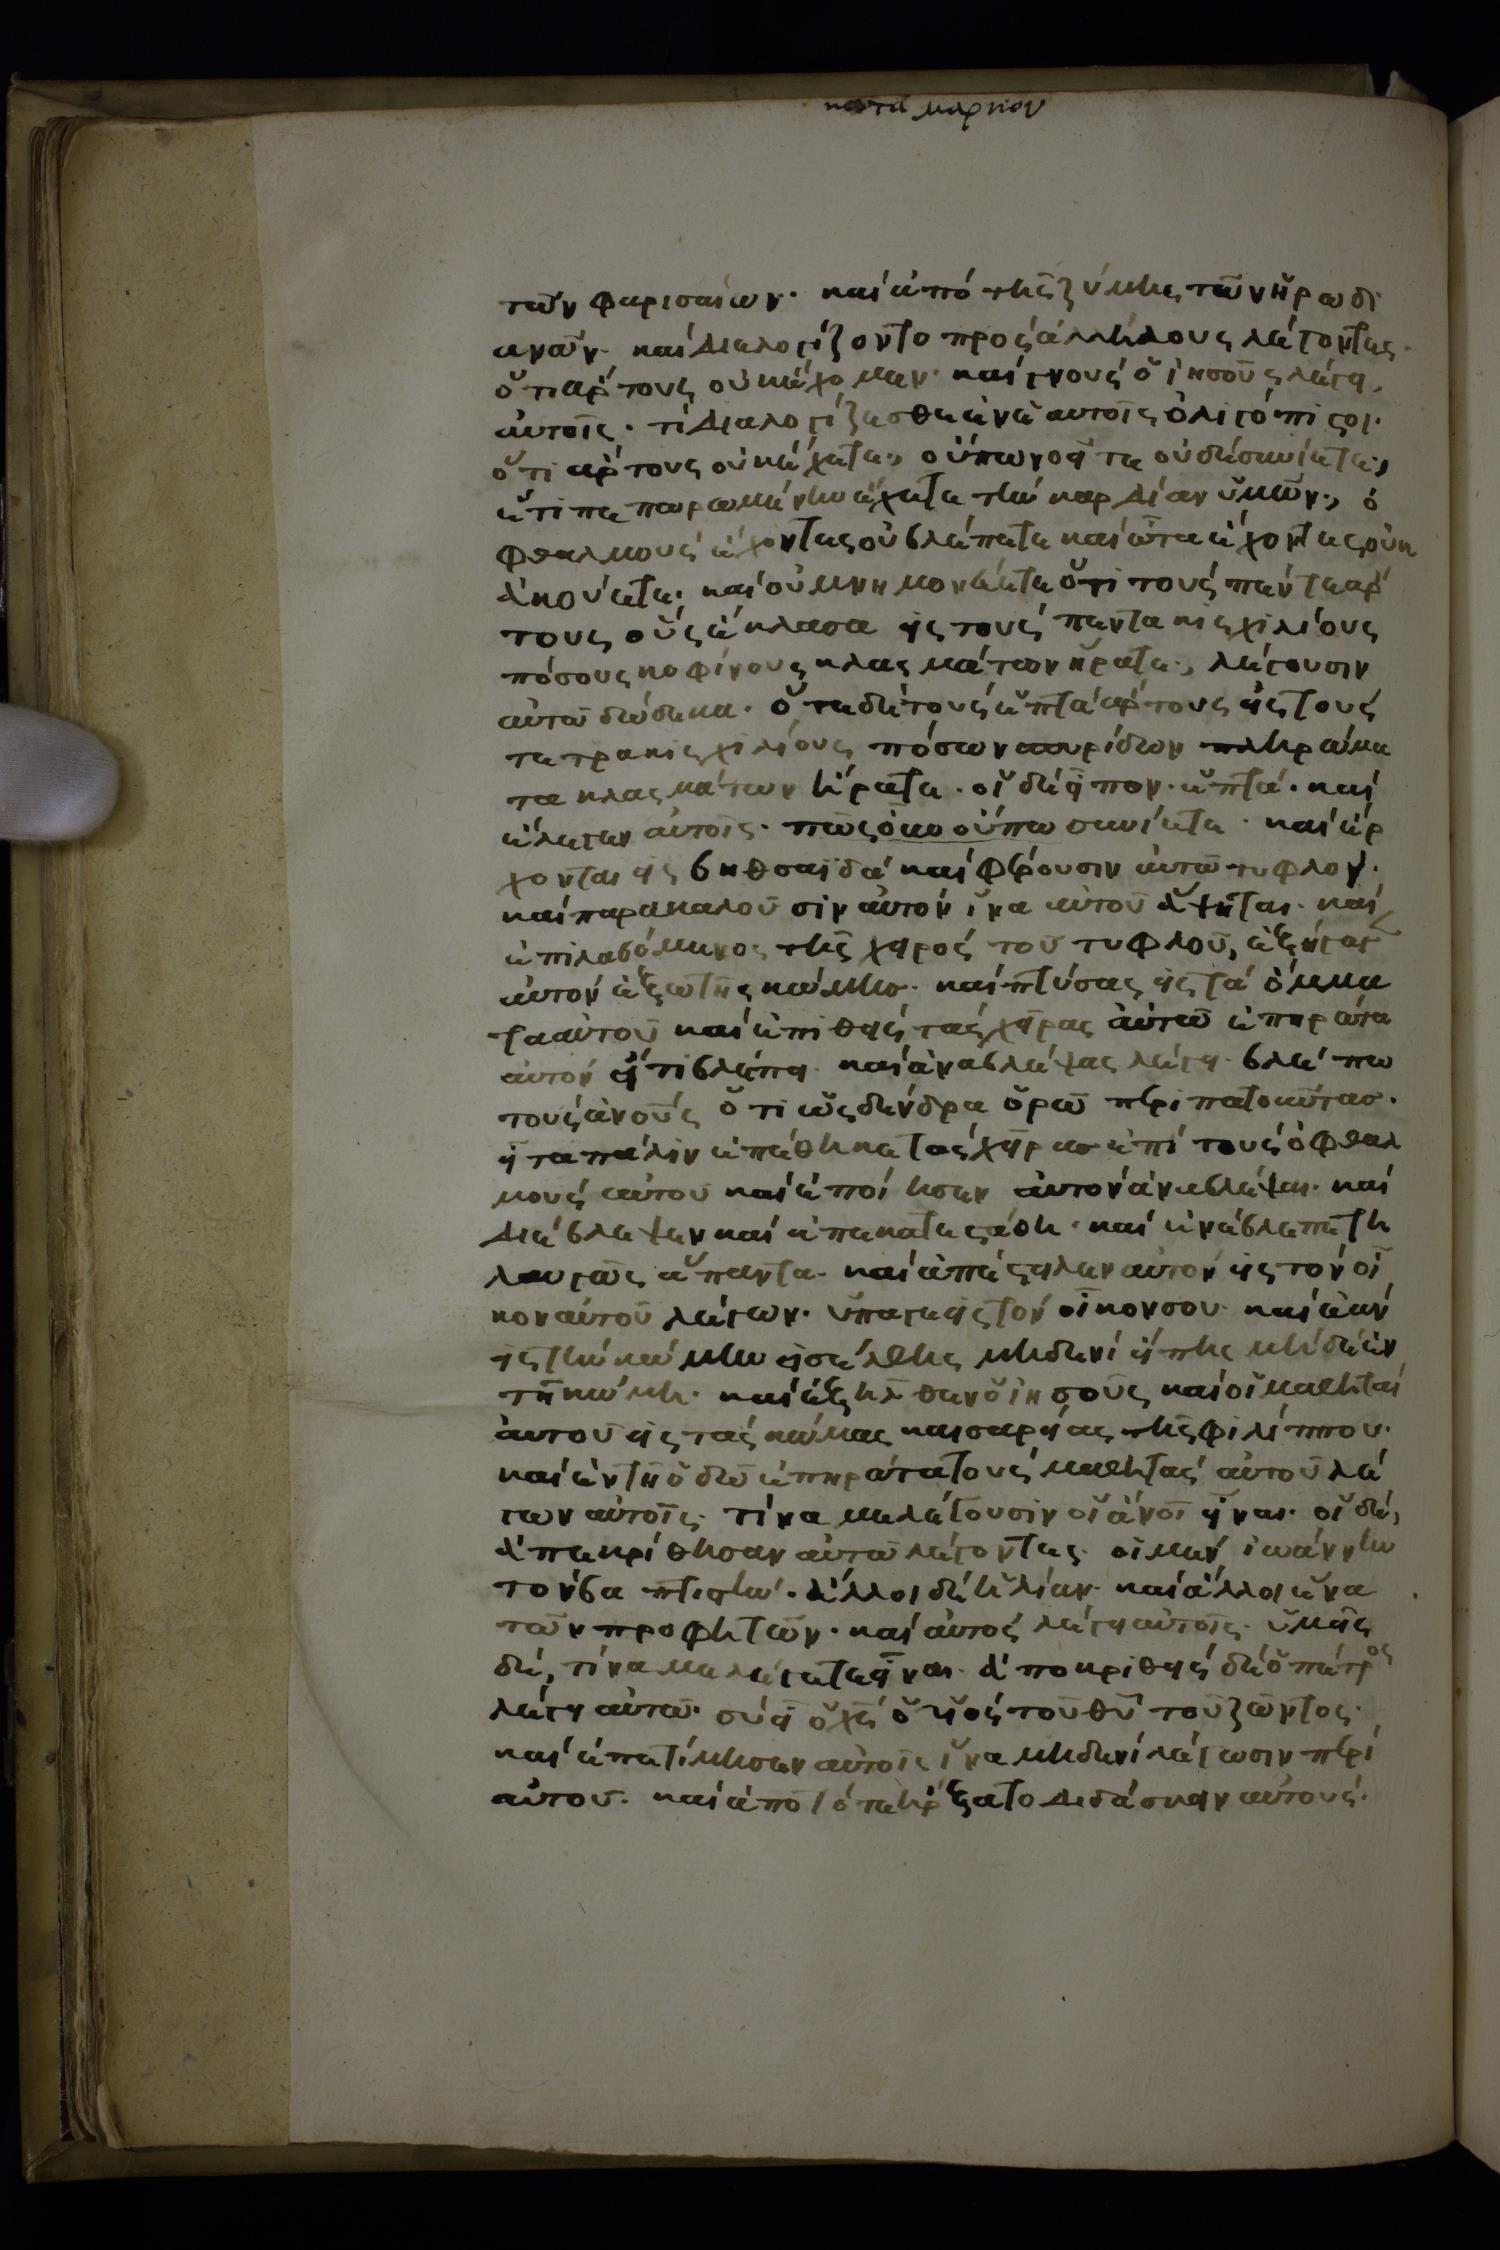 κατα μαρκον
των φαρισαίων· καὶ ἀπό τῆς ζύμης τῶν ἡρωδι
ανῶν· καὶ διελογίζοντο πρὸς ἀλλήλους λέγοντες·
ὅτι ἄρτους οὐκ ἔχομεν· καὶ γνοὺς ὁ ἰησοῦς λέγει
αὐτοῖς· τί διαλογίζεσθε ἐν ἑαυτοῖς ὀλιγόπιστοι·
ὅτι ἄρτους οὐκ ἔχετε; οὔπω νοεῖτε οὐδὲ συνίετε;
ἔτι πεπωρωμένην ἔχετε τὴν καρδίαν ὑμῶν; ὀ
φθαλμοὺς ἔχοντες οὐ βλέπετε καὶ ὦτα ἔχοντες οὐκ
ἀκούετε· καὶ οὐ μνημονεύετε ὅτι τοὺς πέντε ἄρ
τους οὓς ἔκλασα εἰς τοὺς πεντακισχιλίους
πόσους κοφίνους κλασμάτων ἤρατε; λέγουσιν
αὐτῶ δώδεκα· ὅτε δὲ τοὺς ἑπτὰ ἄρτους εἰς τοὺς
τετρακισχιλίους πόσων σπυρίδων πληρώμα
τα κλασμάτων ἤρατε· οἱ δὲ εἶπον· ἑπτά· καὶ
ἔλεγεν αὐτοῖς· πῶς οὔπω συνίετε· καὶ ἔρ
χονται εἰς βηθσαϊδὰ καὶ φέρουσιν αὐτῶ τυφλον·
καὶ παρακαλοῦσιν αὐτὸν ἵνα αὐτοῦ ἅψηται· καὶ
ἐπιλαβόμενος τῆς χειρὸς τοῦ τυφλοῦ, ἐξήγαγεν
αὐτὸν ἔξω τῆς κώμης· καὶ πτύσας εἰς τὰ ὄμμα
τα αὐτοῦ καὶ ἐπιθεὶς τὰς χεῖρας αὐτῶ ἐπηρώτα
αὐτὸν εἴ τι βλέπει· καὶ ἀναβλέψας λέγει· βλέπω
τοὺς ἀνοῦς ὅτι ὡς δένδρα ὁρῶ περιπατοῦντας·
εἶτα πάλιν ἐπέθηκε τὰς χεῖρας ἐπὶ τοὺς ὀφθαλ
μοὺς αὐτοῦ καὶ ἐποίησεν αὐτὸν ἀναβλέψαι· καὶ
διέβλεψεν καὶ ἀπεκατεστάθη· καὶ ἐνέβλεπε τη
λαυγῶς ἅπαντα· καὶ ἀπέστειλεν αὐτὸν εἰς τὸν οἶ
κον αὐτοῦ λέγων· ὕπαγε εἰς τὸν οἶκον σου· καὶ ἐὰν
εἰς τὴν κώμην εἰσέλθης μηδενὶ εἴπης μηδὲ ἐν
τῆ κώμη· καὶ ἐξῆλθεν ὁ ἰησοῦς καὶ οἱ μαθηταὶ
αὐτοῦ εἰς τὰς κώμας καισαρείας τῆς φιλίππου·
καὶ ἐν τῆ ὁδῶ ἐπηρώτα τοὺς μαθητὰς αὐτοῦ λέ
γων αὐτοῖς· τίνα με λέγουσιν οἱ ἀνοι εἶναι· οἱ δὲ,
ἀπεκρίθησαν αὐτῶ λέγοντες· οἱ μὲν ἰωάννην
τὸν βαπτιστὴν· ἄλλοι δὲ ἡλίαν· καὶ ἄλλοι ἕνα
τῶν προφητῶν· καὶ αὐτὸς λέγει αὐτοῖς· ὑμεῖς
δὲ, τίνα με λέγετε εἶναι· ἀποκριθεὶς δὲ ὁ πέτρος
λέγει αὐτῶ· σὺ εἶ ὁ χς ὁ υἱὸς τοῦ θυ τοῦ ζῶντος·
καὶ ἐπετίμησεν αὐτοῖς ἵνα μηδενὶ λέγωσιν περὶ
αὐτοῦ. καὶ ἀπὸ τότε ἤρξατο διδάσκειν αὐτοὺς·